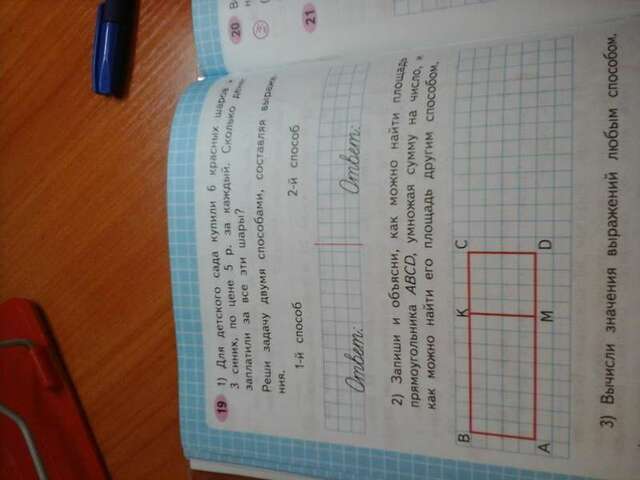 19 1) Для детского сада купили 6 красных шаров и
3 синих, по цене 5 р. за каждый. Сколько
заплатили за все эти шары?
Реши задачу двумя способами, составляя
ния.
1-й способ 2-й способ
Ответ: Ответ:
2) Запиши и объясни, как можно найти площадь
прямоугольника ABCD, умножая сумму на число, и
как можно найти его площадь другим способом.
B K C
A M D
3) Вычисли значения выражений любым способом.
20
21